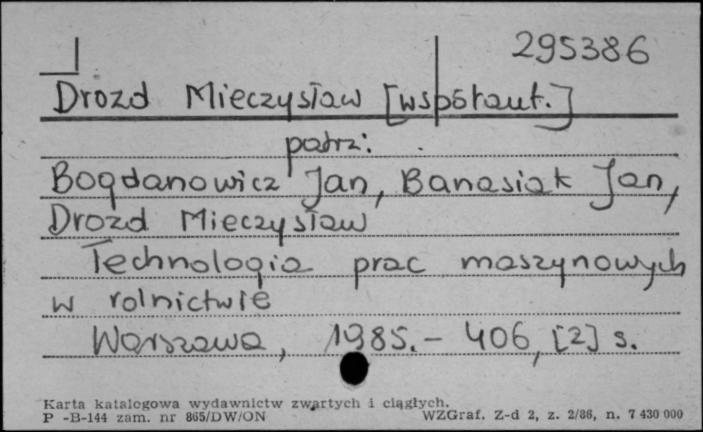 295386
Drozd Mieczysław [współaut.]
patrz:
Bogdanowicz Jan, Banasiak Jan,
Drozd Mieczysław
Technologia prac maszynowych
w rolnictwie
Warszawa, 1985.- 406, [2] s.
Karta katalogowa wydawnictw zwartych i ciągłych.
P -B-144 zam. nr 865/DW/ON WZGraf. Z-d 2, z. 2/86, n. 7 430 000